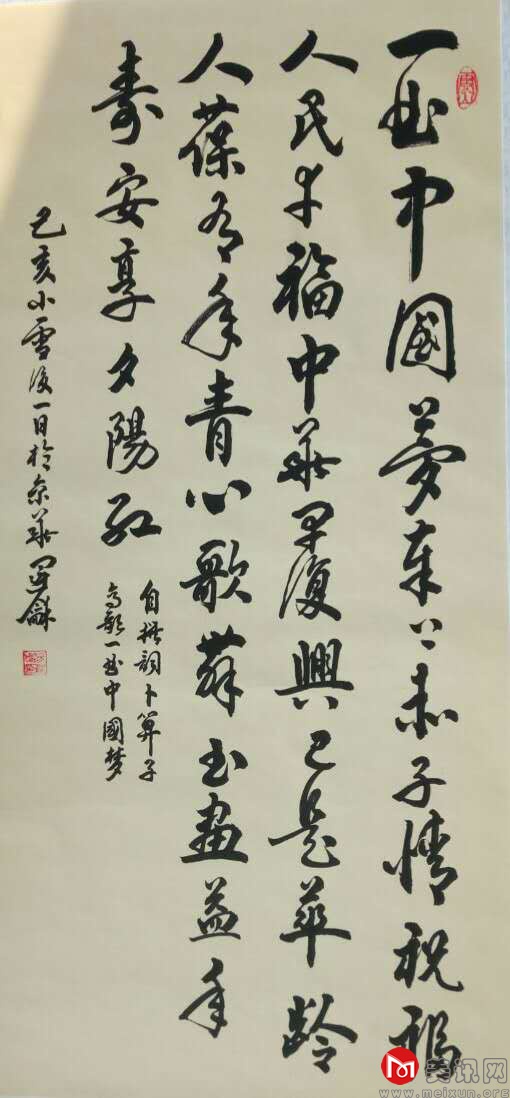 一曲中國夢奉上赤子情祝福
人民幸福中華早復興已是華齡
人葆有年青心歌舞書畫益年
壽安享夕陽紅
自撰詞卜算子
高歌一曲中國梦
己亥小雪後一日於京華
美讯网
www.meixun.org